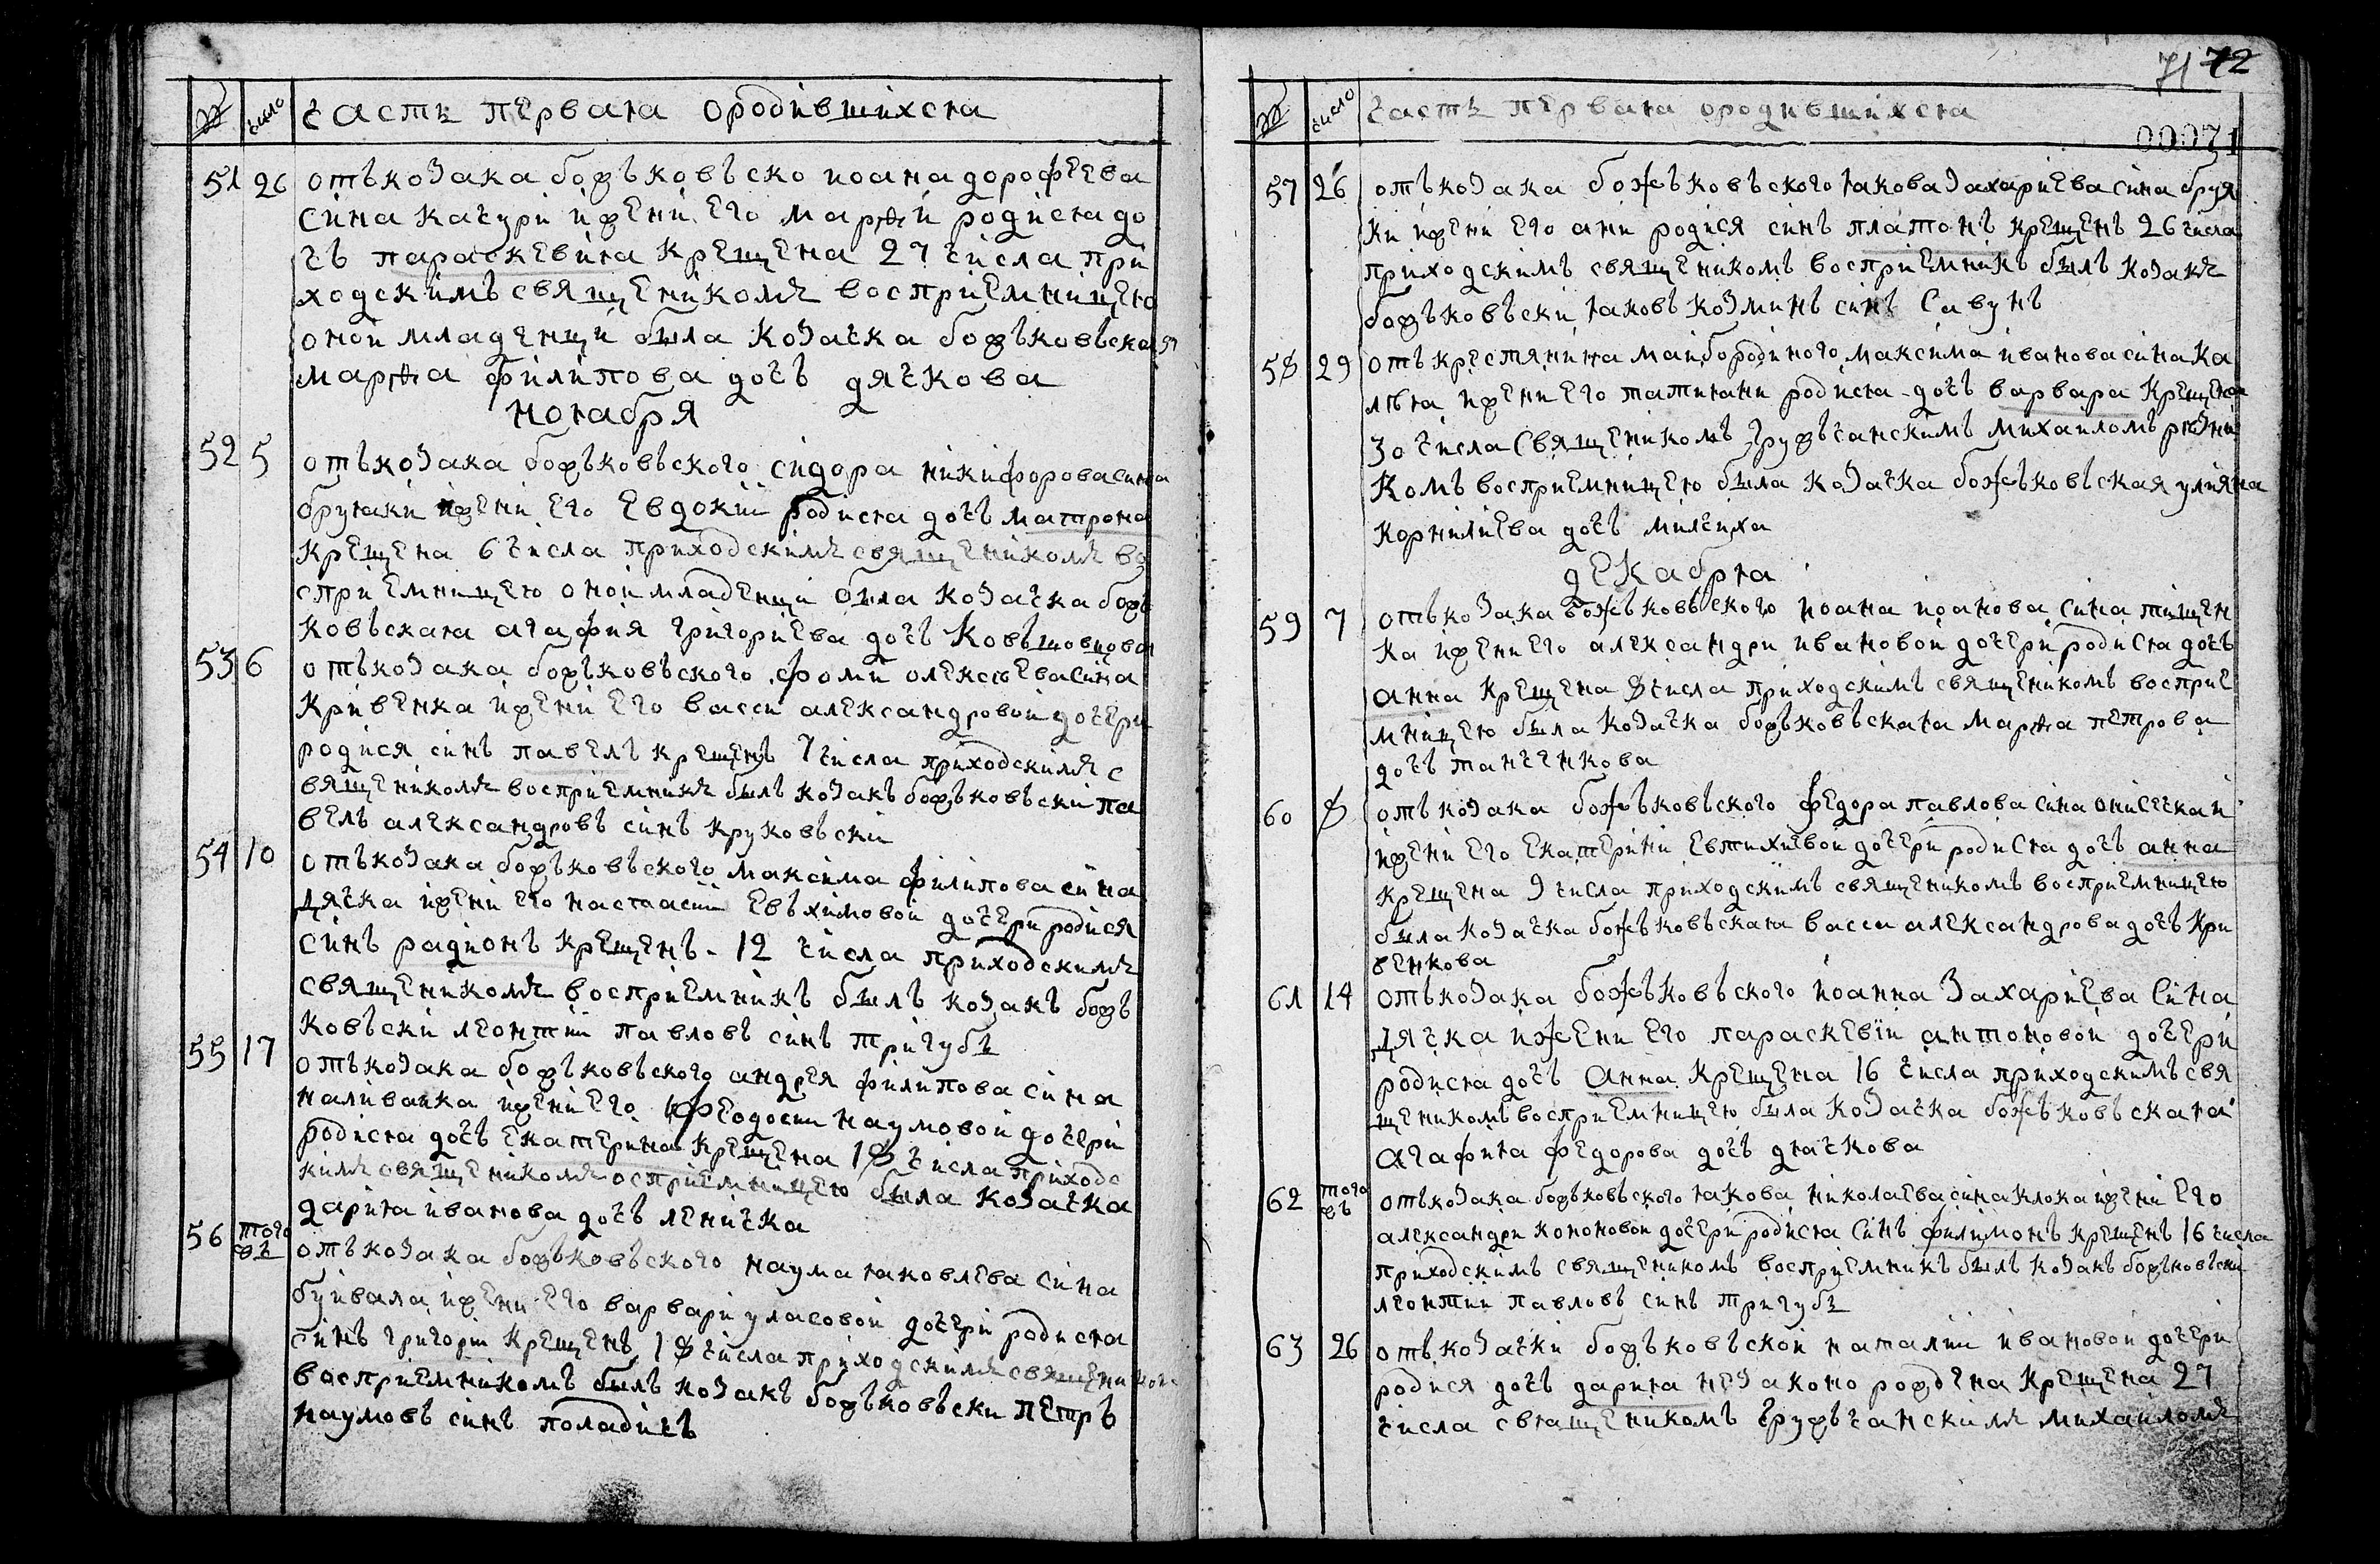 № число часть первая ородившихся
51 26 отъкозака божъковъско иоана дорофеева
сина качури ижени его марѳи родися до
чъ параскевия крещена 27 числа при
ходскимъ священикомъ восприемницею
оной младенци была козачка божъковъская
марѳа филипова дочъ дячкова
ноября
52 5 отъкозака божъковъского сидора никифорова сина
бруяки ижени его евдокии родися дочъ матрона
крещена 6 числа приходскимъ священикомъ во
сприемницею оной младенци была козачка божъ
ковъская агафия григориева дочъ
53 6 отъкозака божъковъского фоми олексѣева сина
кривенка ижени его васси александровой дочери
родися синъ павелъ крещенъ 7 числа приходскимъ с
вященикомъ восприемникъ былъ козакъ божъковъски па
велъ александровъ синъ круковъски
54 10 отъкозака божъковъского максима филипова сина
дячка ижени его настасии евъхимовой дочери родися
синъ радионъ крещенъ - 12 числа приходскимъ
священикомъ восприемникъ былъ козакъ божъ
ковъски леонтии павловъ синъ тригубъ
55 17 отъкозака божъковъского андрея филипова сина
наливайка ижени его феодосии наумовой дочери
родися дочъ екатерина крещена 18 числа приходс
кимъ священикомъ осприемницею была козачка
дария иванова дочъ леничка
56 того жъ отъкозака божъковъского наума яковлева сина
буйвала ижени его варвари уласовой дочери родися
синъ григории крещенъ 18 числа приходскимъ священикомъ
восприемникомъ былъ козакъ божъковъски петръ
наумовъ синъ поладичъ
71 72
№ число часть первая ородившихся
00071
57 26 отъкозака божъковъского якова захариева сина бруя
ки ижени его ани родися синъ платонъ крещенъ 26 числа
приходскимъ священикомъ восприемникъ былъ козакъ
божъковъски яковъ козминъ синъ савунъ
58 29 откъкрестянина майбородиного максима иванова сина ка
лѣта ижени его татияни родися - дочъ варвара крещена
30 числа священикомъ гружъчанскимъ михаиломъ рѣзни
комъ восприемницею была козачка божъковъская улияна
корнилиева дочъ милчиха
декабря
59 7 отъкозака божъковъского иоана иоанова сина тищен
ка ижени его александри ивановой дочери родися дочъ
анна крещена 8 числа приходскимъ священикомъ восприе
мницею была козачка божъковъская марѳа петрова
дочъ танченкова
60 8 отъкозака божъковъского федора павлова сина онисечкаи
ижени его екатерини евтихиевой дочери родися дочъ анна
крещена 9 числа приходскимъ священикомъ восприемницею
была козачка божъковъская васса александрова дочъ кри
венкова
61 14 отъкозака божъковъского иоанна захариева сина
дячка ижени его параскевии антоновой дочери
родися дочъ анна крещена 16 числа приходскимъ свя
щеникомъ восприемницею была козачка божъковъская
агафия федорова дочъ дячкова
62 того жъ отъкозака божъковъского якова николаева сина клока ижени его
александри кононовой дочери родися синъ филимонъ крещенъ 16 числа
приходскимъ священикомъ восприемникъ былъ козакъ божъковъски
леонтии павловъ синъ тригубъ
63 26 отъкозачки божъковъской наталии ивановой дочери
родися дочъ дария незаконо рождена крещена 27
числа священикомъ гружъчанскимъ михаиломъ